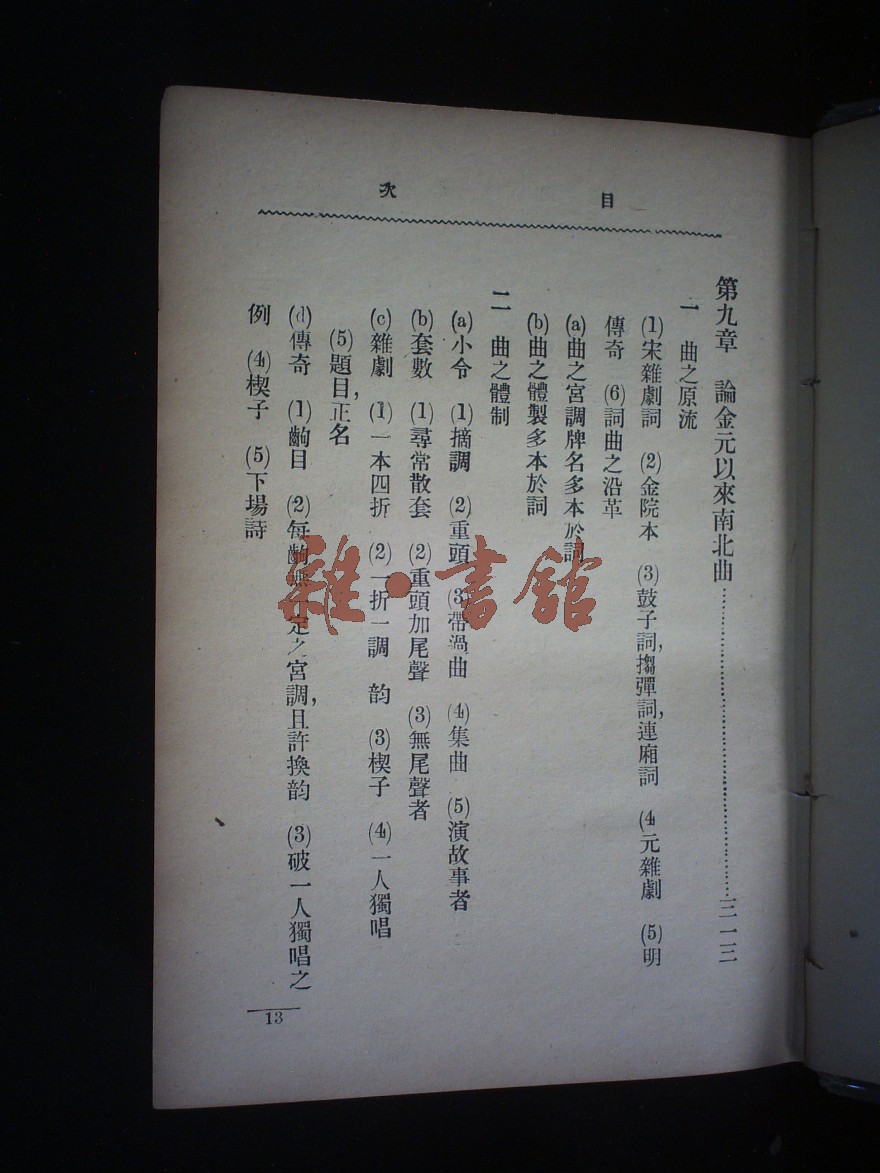 目次
第九章　論金元以來南北曲……三一三
一　曲之原流
(1)宋雜劇詞　(2)金院本　(3)鼓子詞,搊彈詞,連廂詞　(4)元雜劇　(5)明
傳奇　(6)詞曲之沿革
(a)曲之宮調牌名多本於詞
(b)曲之體製多本於詞
二　曲之體制
(a)小令　(1)摘調　(2)重頭　(3)帶過曲　(4)集曲　(5)演故事者
(b)套數　(1)尋常散套　(2)重頭加尾聲　(3)無尾聲者
(c)雜劇　(1)一本四折　(2)一折一調　韵　(3)楔子　(4)一人獨唱
(5)題目,正名
(d)傳奇　(1)齣目　(2)每齣無一定之宮調,且許換韵　(3)破一人獨唱之
例　(4)楔子　(5)下場詩
13
雜·書館